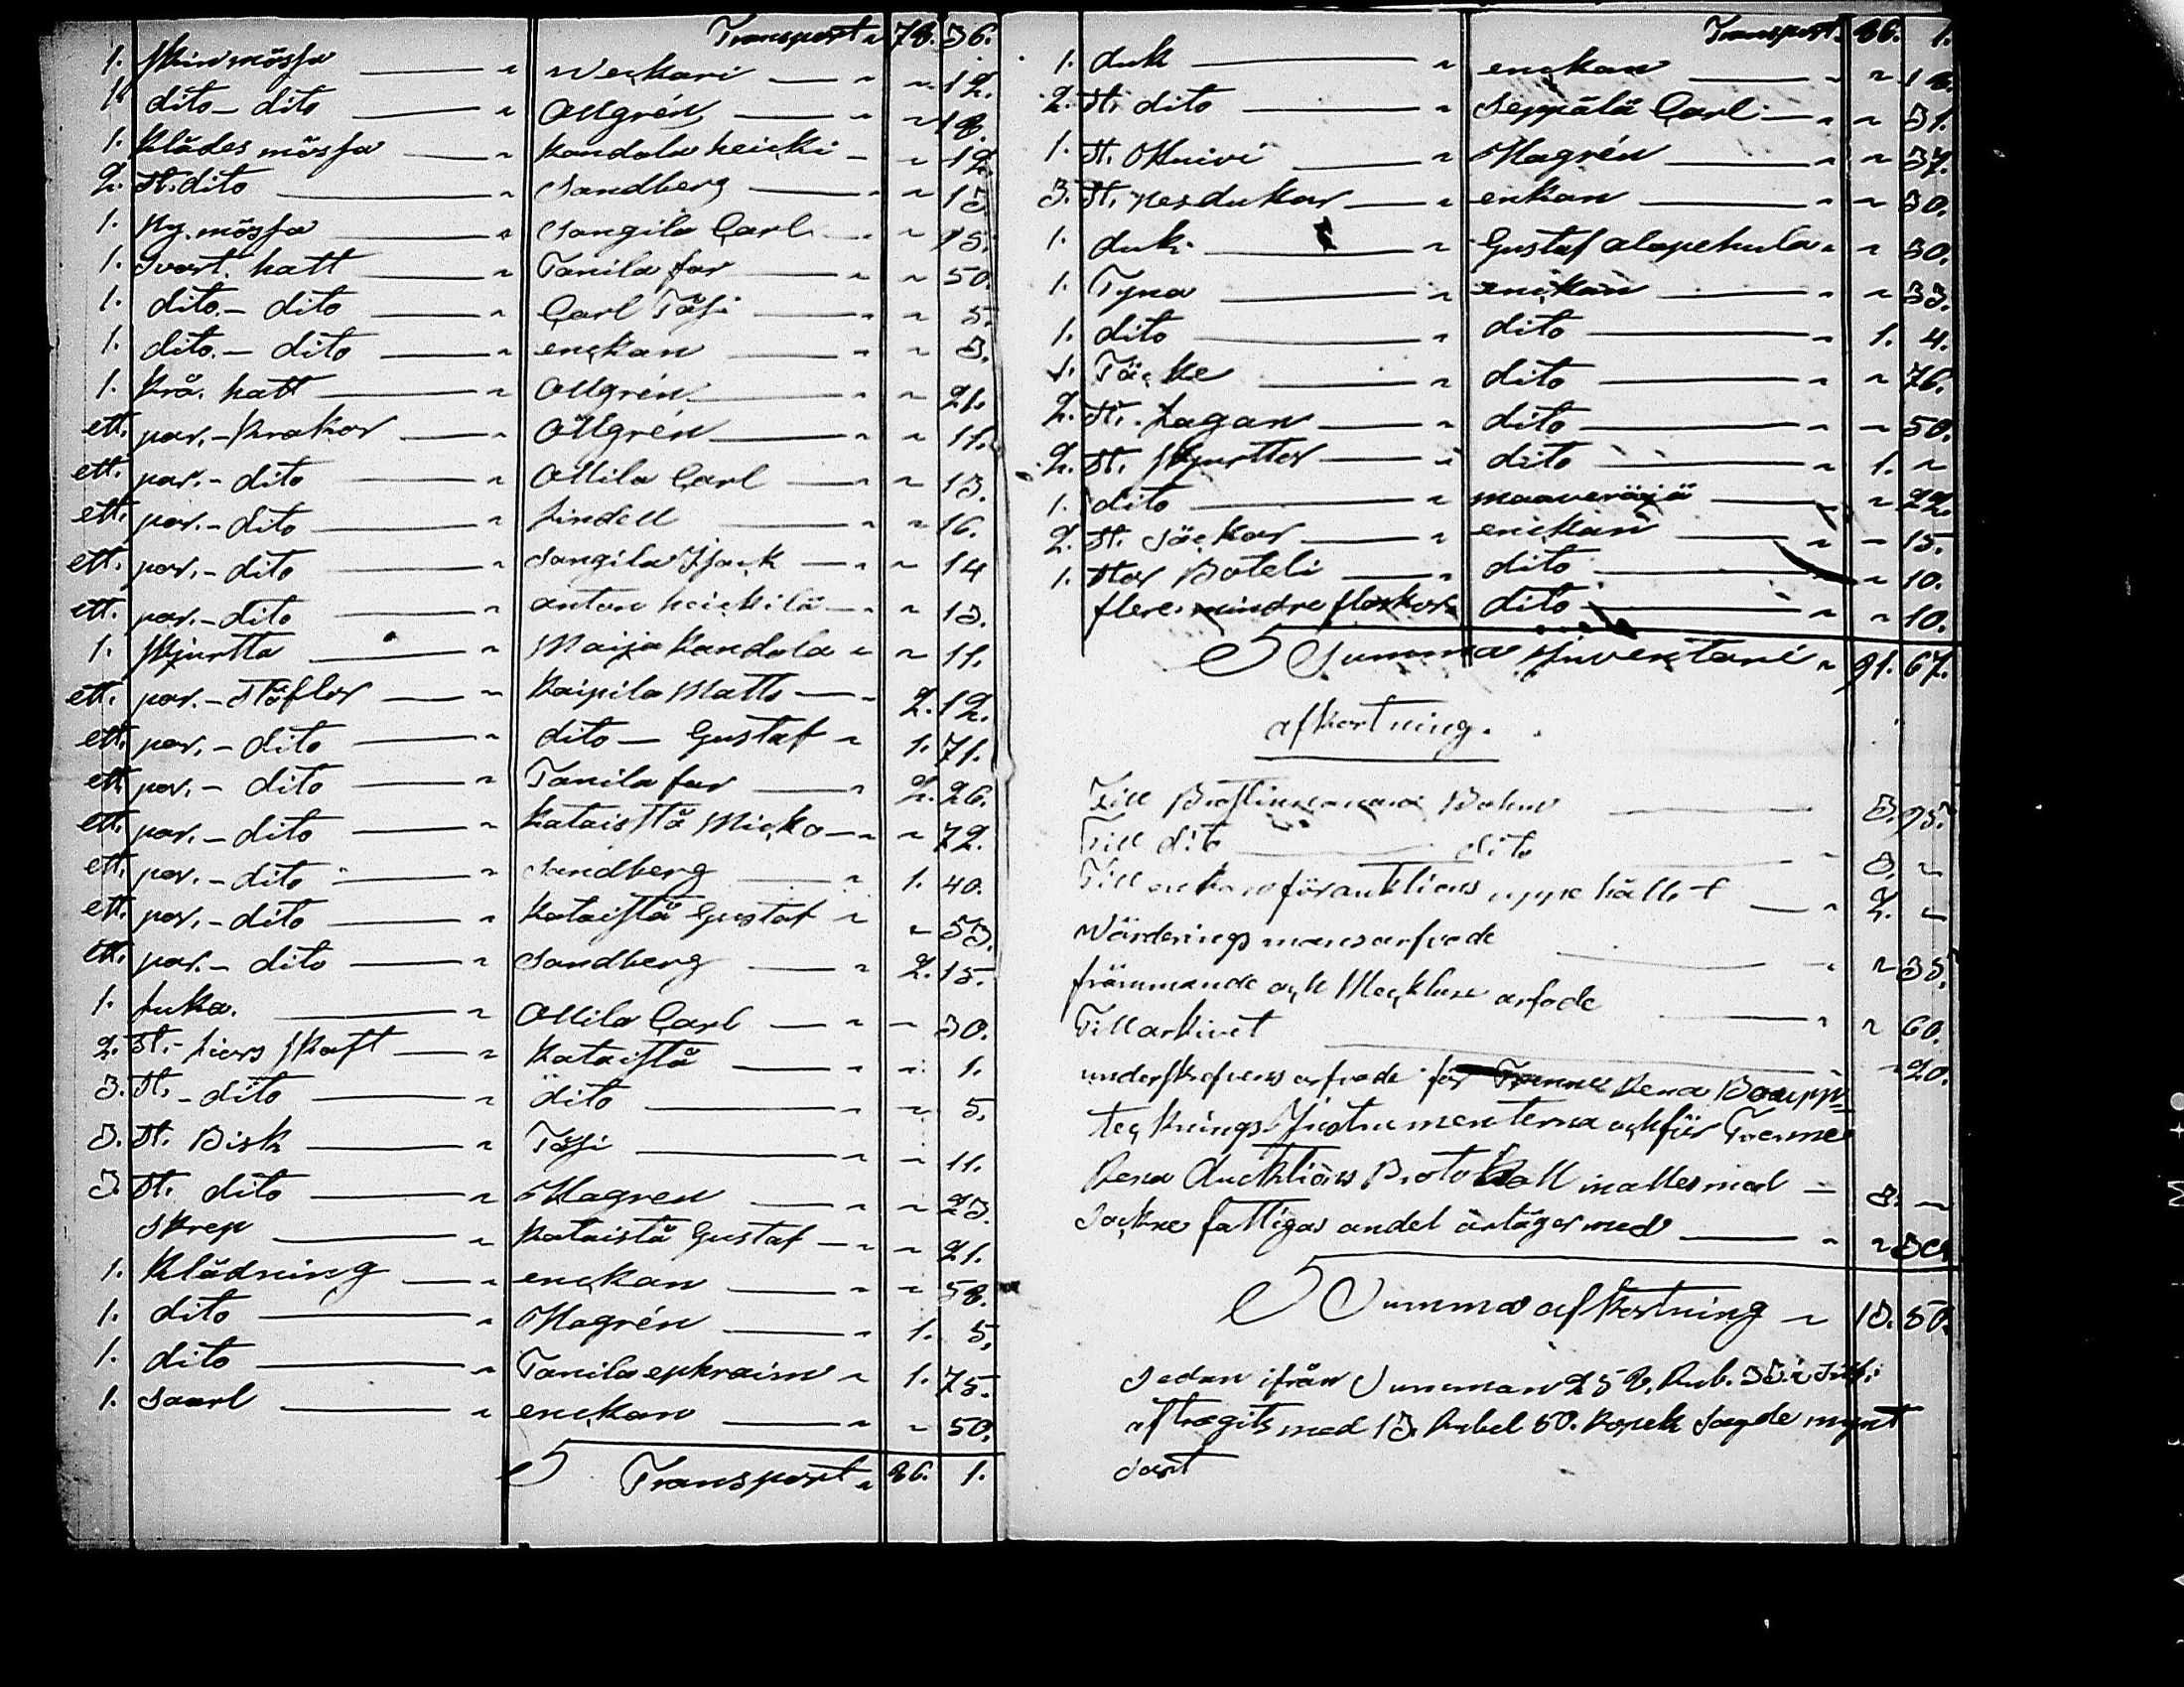 Transport „ 78. 36.
1. skinmössa „ Weckari „ „ 12.
1. dito - dito „ Ollgrén „ „ 18.
1. Klädes mössa „ Kandola heicki - „ 12.
2. St. dito „ Sandberg „ „ 13
1. Ny. mössa „ Sangila Carl „ 15.
1. Svart. hatt „ Tanila far „ 50.
1. dito. - dito „ Carl Täsi „ „ 5.
1. dito. - dito „ enckan „ „ 3.
1. Krå. hatt „ Ollgrén „ „ 21.
ett. par. - Krakor „ Ollgrén „ „ 11.
ett. par. - dito „ Ollila Carl „ „ 13.
ett. par. - dito „ Lindell „ „ 16.
ett. par. - dito „ Sangila Isack „ „ 14
ett. par. - dito „ anton heickilä „ „ 13.
1. skjurtta „ Maija Kandola „ „ 11.
ett. par. - stöflor „ Kaipila Matts „ 2. 12.
ett. par. - dito „ dito - Gustaf „ 1. 71.
ett. par. - dito „ Tanila far „ 2. 26.
ett. par. - dito „ Kataistä Micko „ „ 72.
ett. par. - dito „ Sandberg „ 1. 40.
ett. par. - dito „ Kataistä Gustaf „ „ 53.
ett. par. - dito „ Sandberg „ 2. 15.
1. Luka. „ Ollila Carl „ „ 30.
2. St. - Liers skaft „ Kataistä „ „ 1.
3. St. - dito „ dito „ „ 5.
3. St. Bisk „ Täsi „ „ 11.
3. St. dito „ Hagren „ „ 23.
Skrep „ Kataistä Gustaf „ „ 21.
1. Klädning „ enckan „ „ 58.
1. dito „ Hagrén „ 1. 5.
1. dito „ Tanila ephraim „ 1. 75.
1. Saarl „ enckan „ „ 50.
Transport „ 86. 1.
Transport. 86. 1.
1. duk „ enckan „ „ 18.
2. St. dito „ Seppälä Carl „ „ 31.
1. St. Knivi „ Hagrén „ „ 37.
3. St. nesdukar „ enkan „ „ 30.
1. duk. „ Gustaf alapehula „ „ 30.
1. Tyna „ enckan „ „ 33.
1. dito „ dito „ 1. 4.
1. Täcke „ dito „ „ 76.
2. St. Lagan „ dito „ „ 50.
2. St. skjurttor „ dito „ 1. „
1. dito „ maaveräjä „ 22.
2. St. Säckar „ enckan „ „ 15.
1. Stor Boteli „ dito „ 10.
flere mindre flaskor „ dito „ „ 10.
Summa Inventarie „ 91. 67.
afkortning.
Till Bohm 3. 95.
Till dito dito „ 3. „
Till enkan för auktions uppehållet „ 2. „
Wärderings mans arfvode „ „ 35.
främmande och Mäcklare arfode „ „ 60.
Till arkivet „ 20.
underskrifvens arfvode för Trenne Rena Boupp=
tecknings Instrumenterna och för Trenne
Rena Aucktions Protokoll inalles med — 3. „
Sockne fattigas andel antages med „ „
Summa afkortning „ 13. 50.
Sedan ifrån Summan 258. Rub.
aftragits med 13. Rubel 50. Kopek Sagde mynt
samt